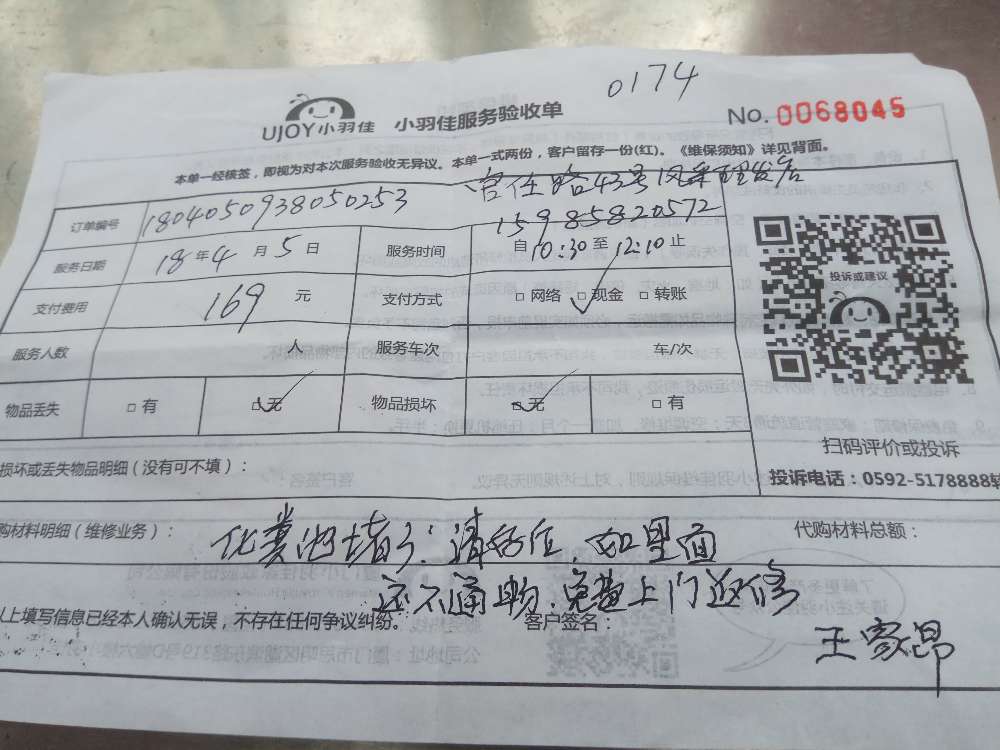 0174
UJOY小羽佳 小羽佳服务验收单 No. 0068045
本单一经核签，即视为对本次服务验收无异议。本单一式两份，客户留存一份(红)。《维保须知》详见背面。
官任路43号风采理发店
订单编号 1804050938050253 15985820572
服务日期 18年4月5日 服务时间 自10:30至12:10止
支付费用 169元 支付方式 □网络 □现金 □转账
服务人数 人 服务车次 车/次
物品丢失 □有 □无 物品损坏 □无 □有
投诉或建议
扫码评价或投诉
投诉电话：0592-5178888转
损坏或丢失物品明细（没有可不填）：
购材料明细（维修业务）： 代购材料总额：
化粪池堵了.清好后 如里面
还不通畅.免费上门返修
以上填写信息已经本人确认无误，不存在任何争议纠纷。 客户签名：
王家昂